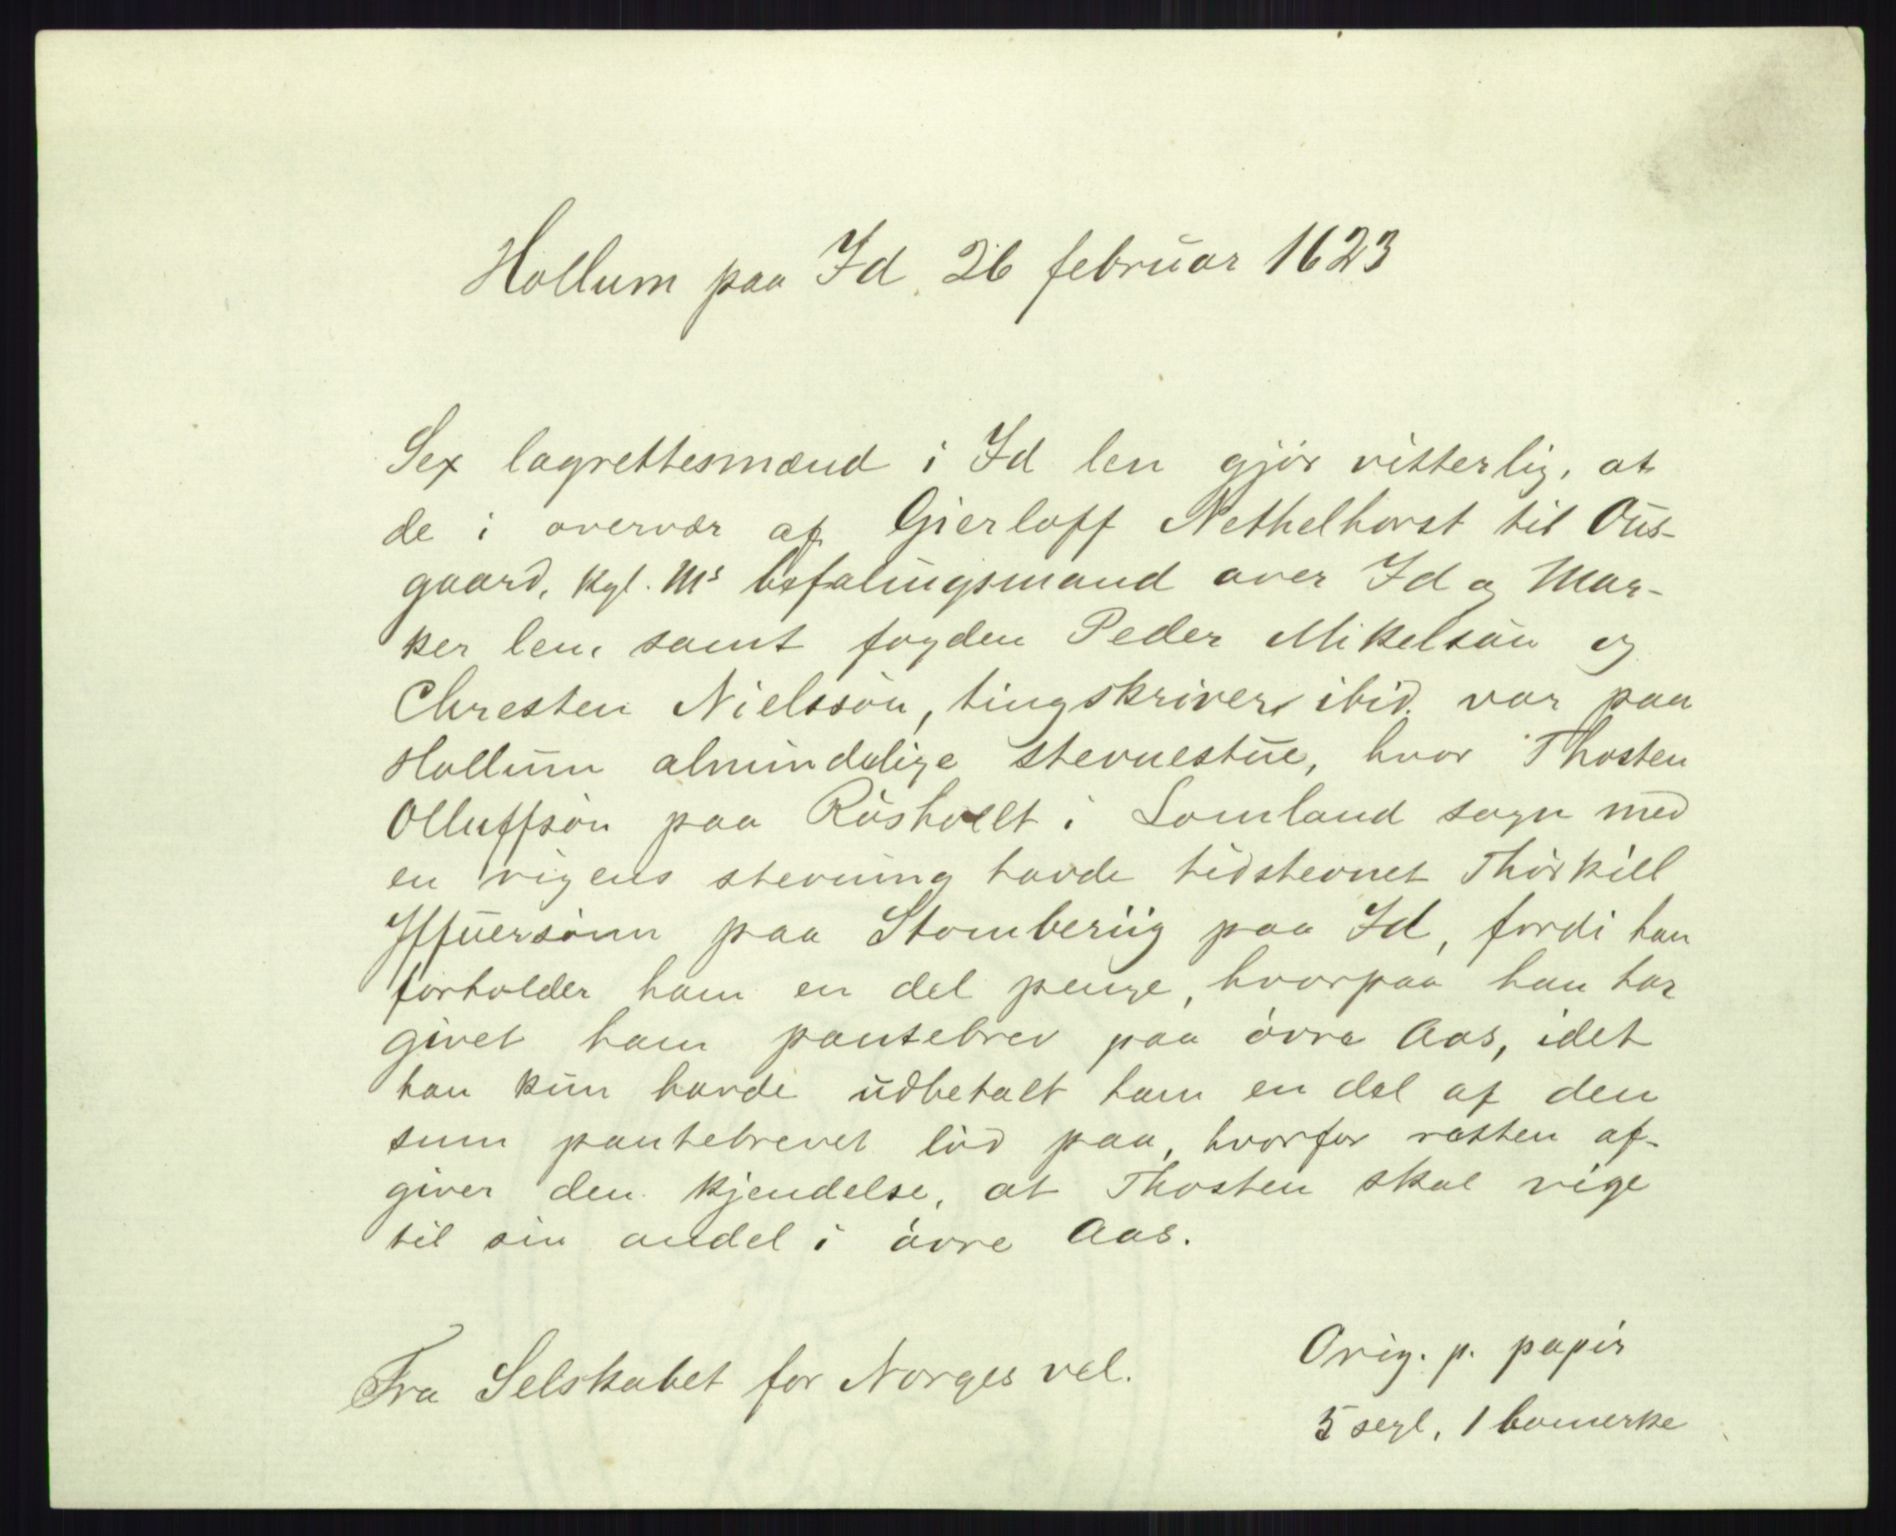 Hollum paa Id 26 februar 1623
Sex lagrettesmænd i Id len gjör vitterlig, at
de i overvær af Gierloff Nethelhorst til Ous-
gaard, kgl. Ms befalingsmand over Id og Mar-
ker len, samt fogden Peder Mikelsön og
Chresten Nielssön, tingskriver ibid. var paa
Hollum almindelige stevnestue, hvor Thosten
Olluffsön paa Röshollt i Somland sogn med
en rigens stevning havde hidstevnet Thörkill
Yffuersönn paa Stomberiig paa Id, fordi han
forholder ham en del penge, hvorpaa han har
givet ham pantebrev paa övre Aas, idet
han kun havde udbetalt ham en del af den
sum pantebrevet löd paa, hvorfor retten af-
giver den kjendelse, at Thosten skal vige
til sin andel i övre Aas.
Fra Selskabet for Norges vel.
Orig. p. papir
5 segl, 1 bomerke